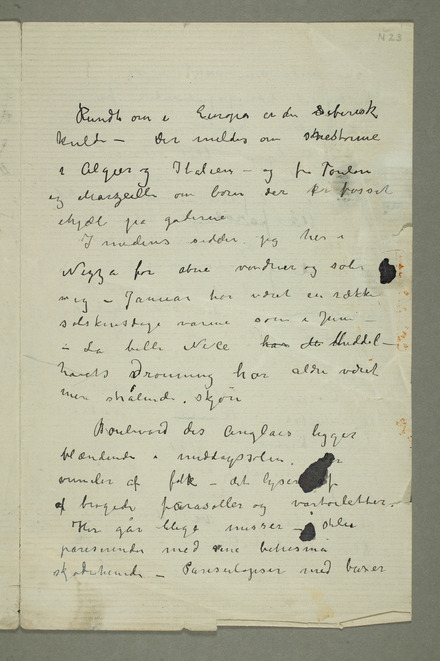 N 23
Rundt om i Europa er der Siberisk
kulde – Der meldes om snestorme
i Algier og Italien – og fra Toulon
og Marzeille om børn der er frosset
ihjæl på gaderne
Imidens sidder jeg her i
Nizza for åbne vinduer og soler
mig – Januar har været en række
solskinsdage varme som i Juni –
– La belle Nice har Middel-
havets Dronning har aldri været
mer strålende, skjøn
Boulevard des Anglais ligger
blændende i middagssolen.
vrimler af folk – det lyser
af brogede parasoller og
Her går blege misser –
med sine bitte små
– med